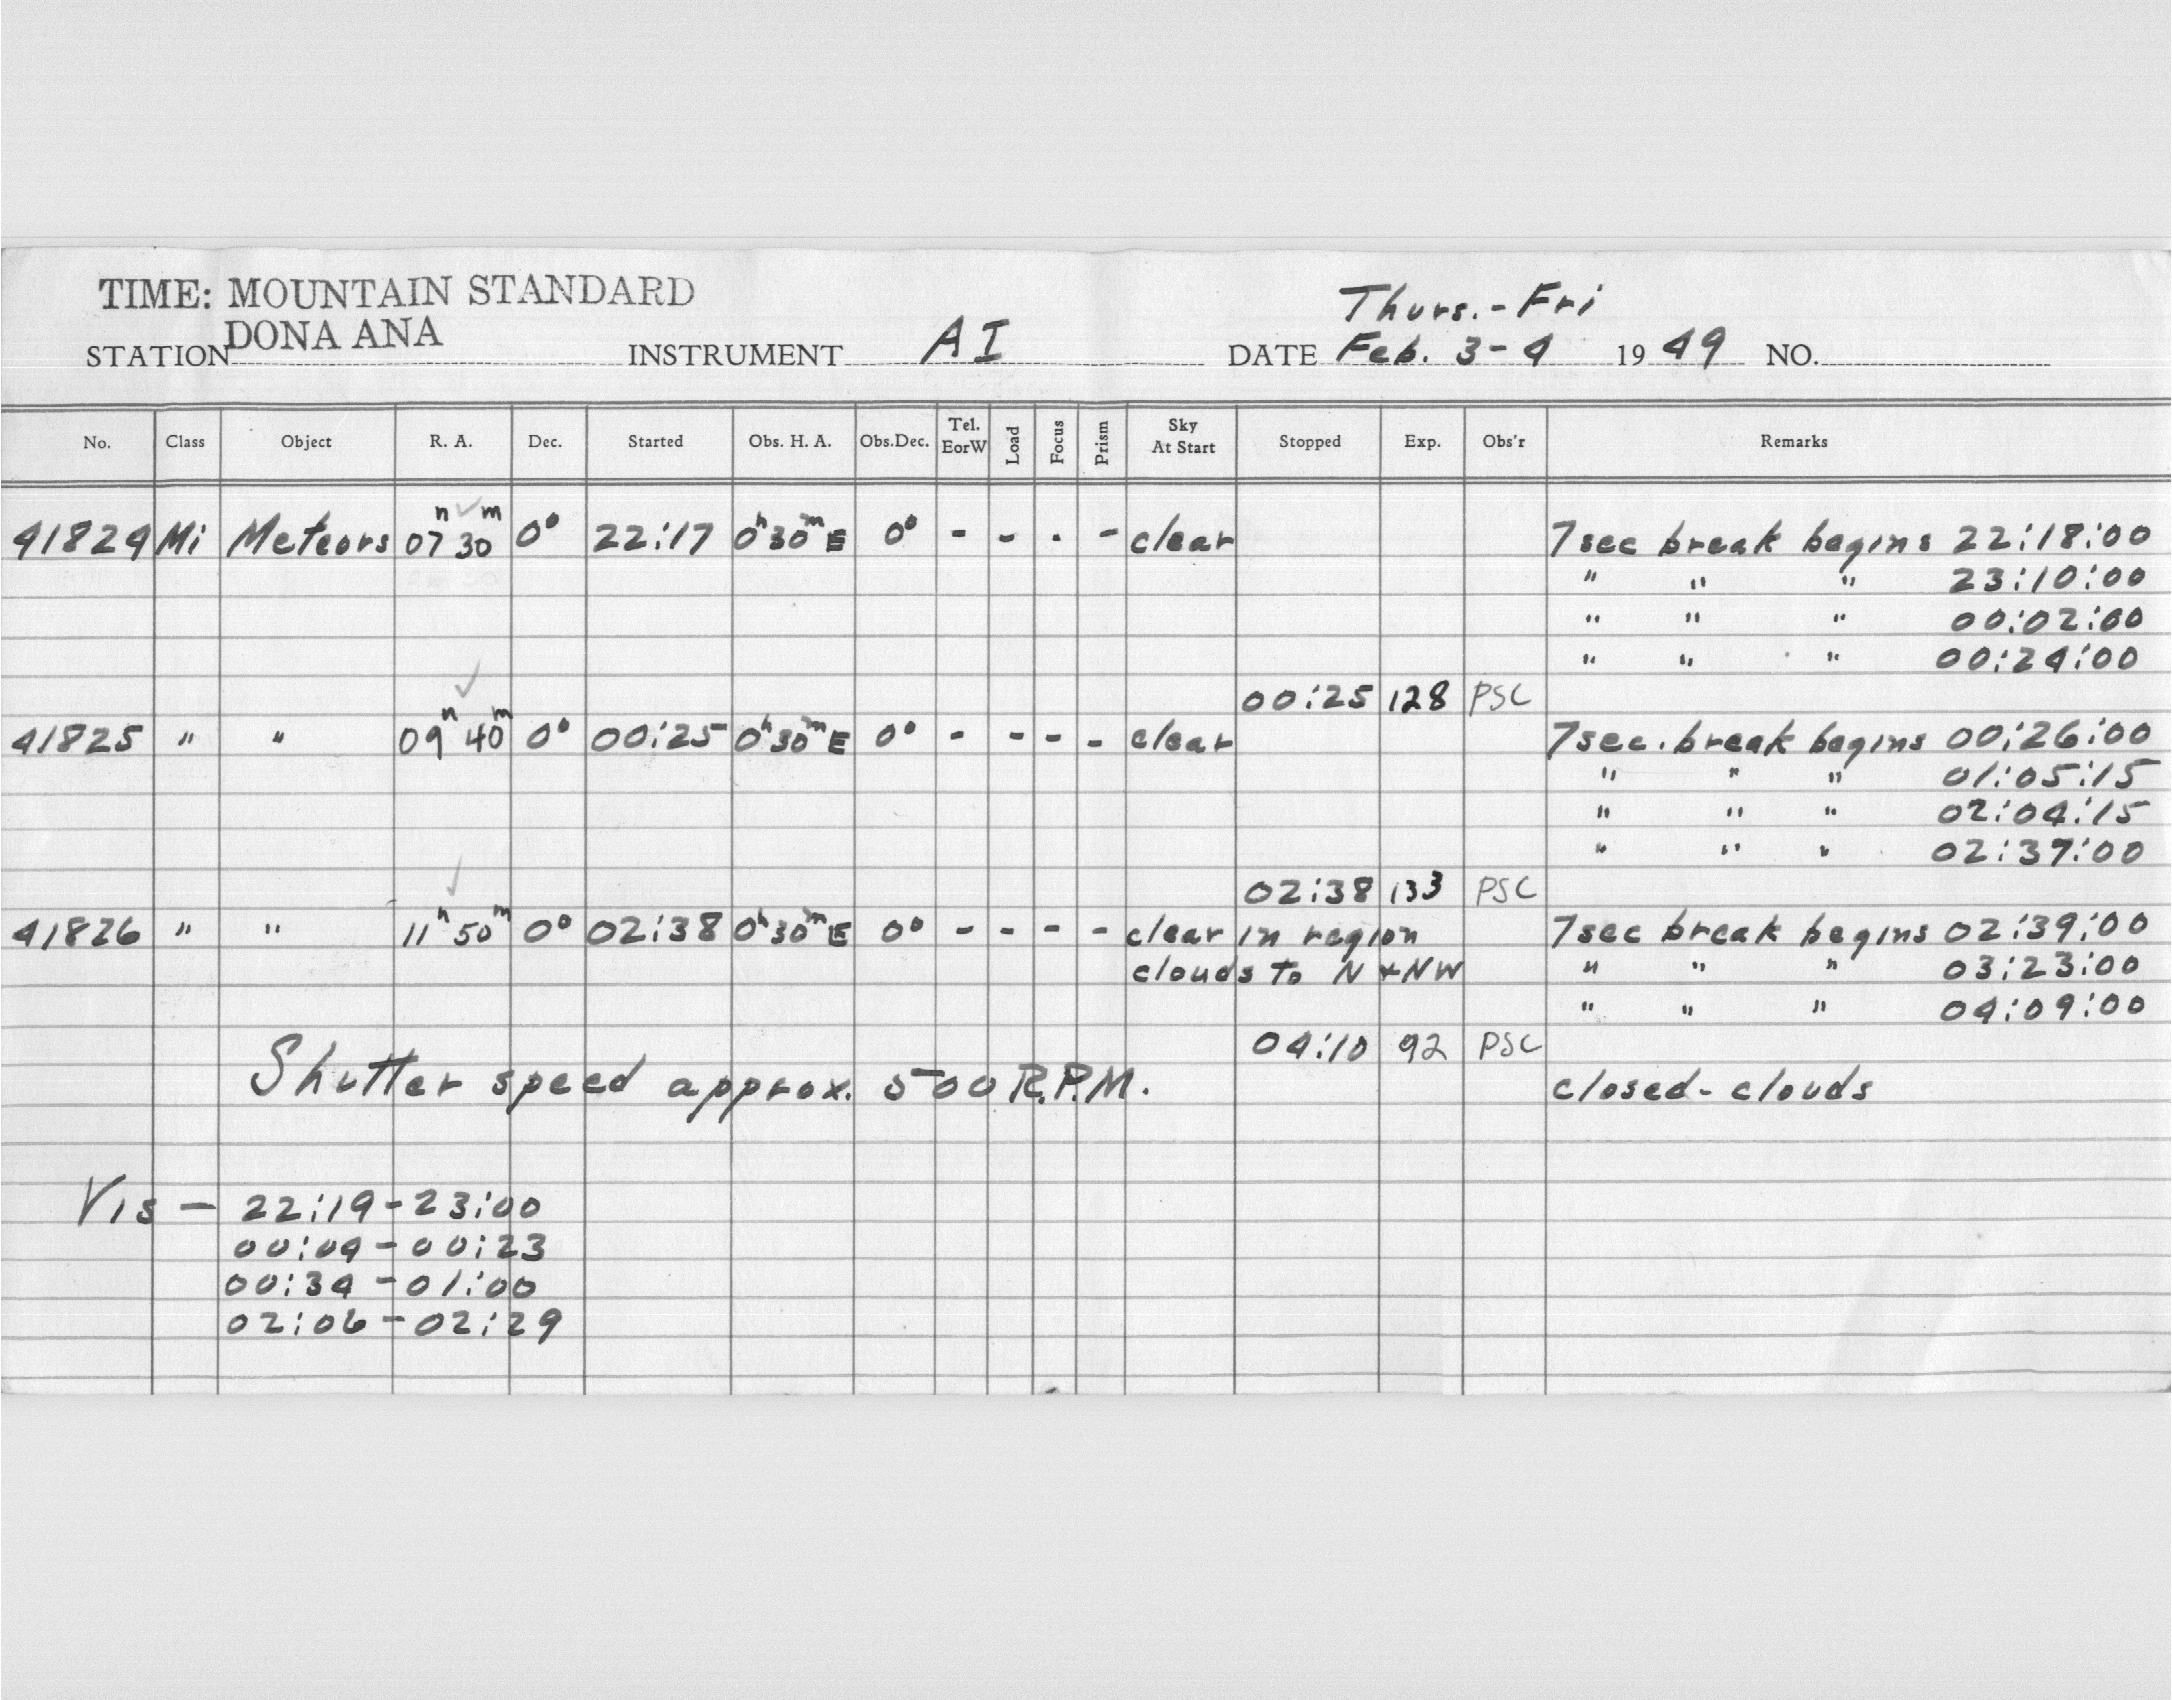 TIME: MOUNTAIN STANDARD
Thurs. - Fri
STATION DONA ANA INSTRUMENT AI DATE Feb. 3-4 1949 NO.
No. Class Object R. A. Dec. Started Obs. H. A. Obs.Dec. Tel. EorW Load Focus Prism Sky At Start Stopped Exp. Obs'r Remarks
41824 Mi Meteors 07h 30m 0° 22:17 0h30mE 0° - - - - clear 7sec break begins 22:18:00
" " " 23:10:00
" " " 00:02:00
" " " 00:24:00
00:25 128 PSC
41825 " " 09h 40m 0° 00:25 0h30mE 0° - - - - clear 7sec. break begins 00:26:00
" " " 01:05:15
" " " 02:04:15
" " " 02:37:00
02:38 133 PSC
41826 " " 11h 50m 0° 02:38 0h30mE 0° - - - - clear in region 7sec break begins 02:39:00
clouds to N + NW " " " 03:23:00
" " " 04:09:00
04:10 92 PSC
Shutter speed approx. 500 R.P.M. closed - clouds
Vis — 22:19 - 23:00
00:04 - 00:23
00:34 - 01:00
02:06 - 02:29